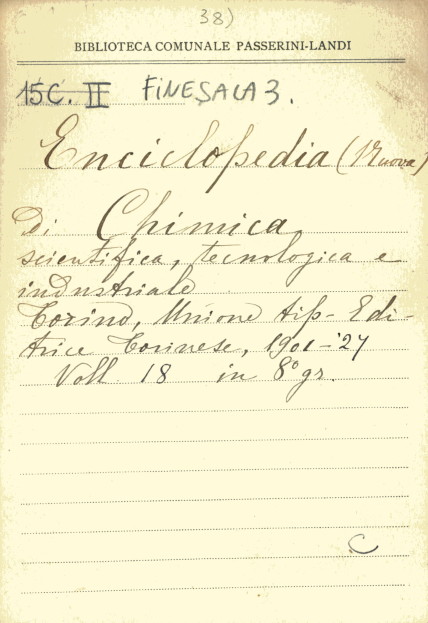 38)
BIBLIOTECA COMUNALE PASSERINI-LANDI
15C. II FINE SALA 3.
Enciclopedia (Nuova)
di Chimica
scientifica, tecnologica e
industriale
Torino, Unione tip-Edi-
trice Torinese, 1901-'27
Voll 18 in 8° gr.
C